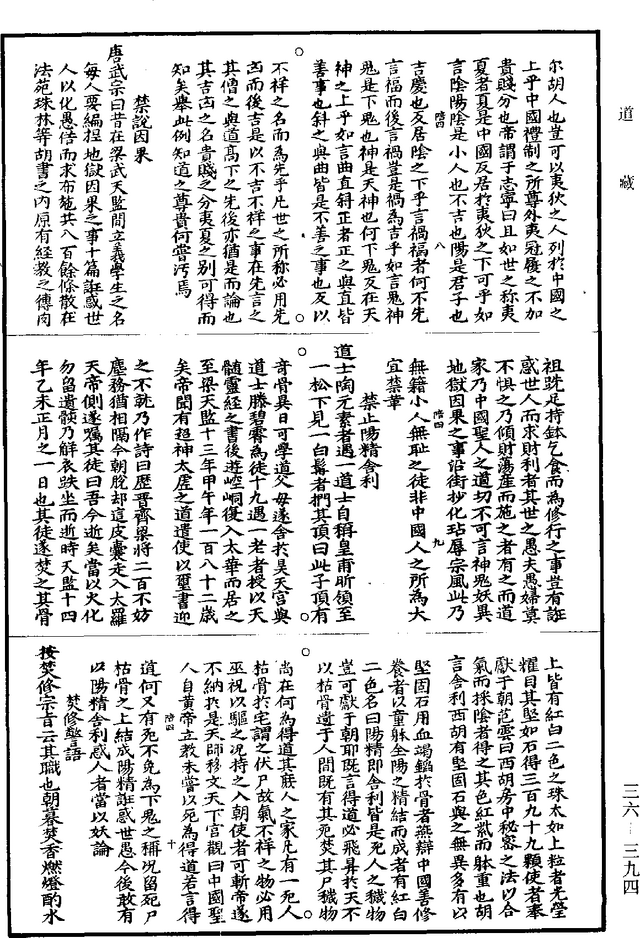 道藏
尔胡人也豈可以夷狄之人列於中國之
上乎中國禮制之所尊外夷冠履之不加
貴賤分也帝謂于志寧曰且如世之称夷
夏者夏是中國反居於夷狄之下可乎如
言陰陽陰是小人也不吉也陽是君子也
陪四 八
吉慶也反居陰之下乎言禍福者何不先
言福而後言禍豈是禍為吉乎如言鬼神
鬼是下鬼也神是天神也何下鬼反在天
神之上乎如言曲直斜正者正之與直皆
善事也斜之與曲皆是不善之事也反以
不祥之名而為先乎凡世之所称必用先
凶而後吉是以不吉不祥之事在先言之
其僧之與道高下之先後亦猶是而論也
其吉凶之名貴賤之分夷夏之别可得而
知矣舉此例知道之尊貴何嘗污焉
禁說因果
唐武宗曰昔在梁武天監間立義學生之名
每人要編捏地獄因果之事十篇誑惑世
人以化愚俉而求布施共八百餘條散在
法苑珠林等胡書之內原有經教之傳肉
祖跣足持鉢乞食而為修行之事豈有誑
惑世人而求財利者其世之愚夫愚婦莫
不惧之乃傾財蕩產而施之者有之而道
家乃中國聖人之遺切不可言神鬼妖異
地獄因果之事沿街抄化玷辱宗風此乃
陪四 九
無籍小人無耻之徒非中國人之所為大
宜禁革
禁止陽精舍利
道士陶元素者遇一道士自稱皇甫昕領至
一松下見一白鬚者捫其頂曰此子頂有
竒骨異日可學道父母遂舍於昊天宫與
道士滕碧霄為徒十九遇一老者授以天
髓靈經之書後遊崆峒復入太華而居之
至梁天監十三年甲午年一百八十二歲
矣帝聞有超神太虚之道遣使以璽書迎
之不就乃作詩曰歷晉齊梁將二百不妨
塵務猶相隔今朝脫却這皮囊走入太羅
天帝側遂囑其徒曰吾今逝矣當以火化
勿留遺骸乃解衣趺坐而逝時天監十四
年乙未正月之一日也其徒遂焚之其骨
上皆有紅白二色之珠太如上粒者光瑩
耀目其堅如石得三百九十九顆使者奉
獻于朝范雲曰西胡房中秘密之法以合
氣而採陰者得之其色紅紫而躰重也胡
言舍利西胡有堅固石與之無異多有以
堅固石用血竭鎦於骨者燕辯中國善修
養者以童躰全陽之精結而成者有紅白
二色名曰陽精即舍利皆是死人之穢物
豈可獻于朝耶既言得道必飛昇於天不
以枯骨遺于人間既有其死焚其尸穢物
尚在何為得道其厥人之家凡有一死人
枯骨於宅謂之伏尸故氣不祥之物必用
巫祝以驅之况持之入朝使者可斬帝遂
不納於是天師移文天下官觀曰中國聖
人自黄帝立教未嘗以死為得道若言得
陪四 十
道何又有死不免為下鬼之稱况留死尸
枯骨之上結成陽精誑惑世愚今後敢有
以陽精舍利惑人者當以妖論
焚修警語
按焚修宗旨云其職也朝暮焚香燃燈酌水
三六—三九四